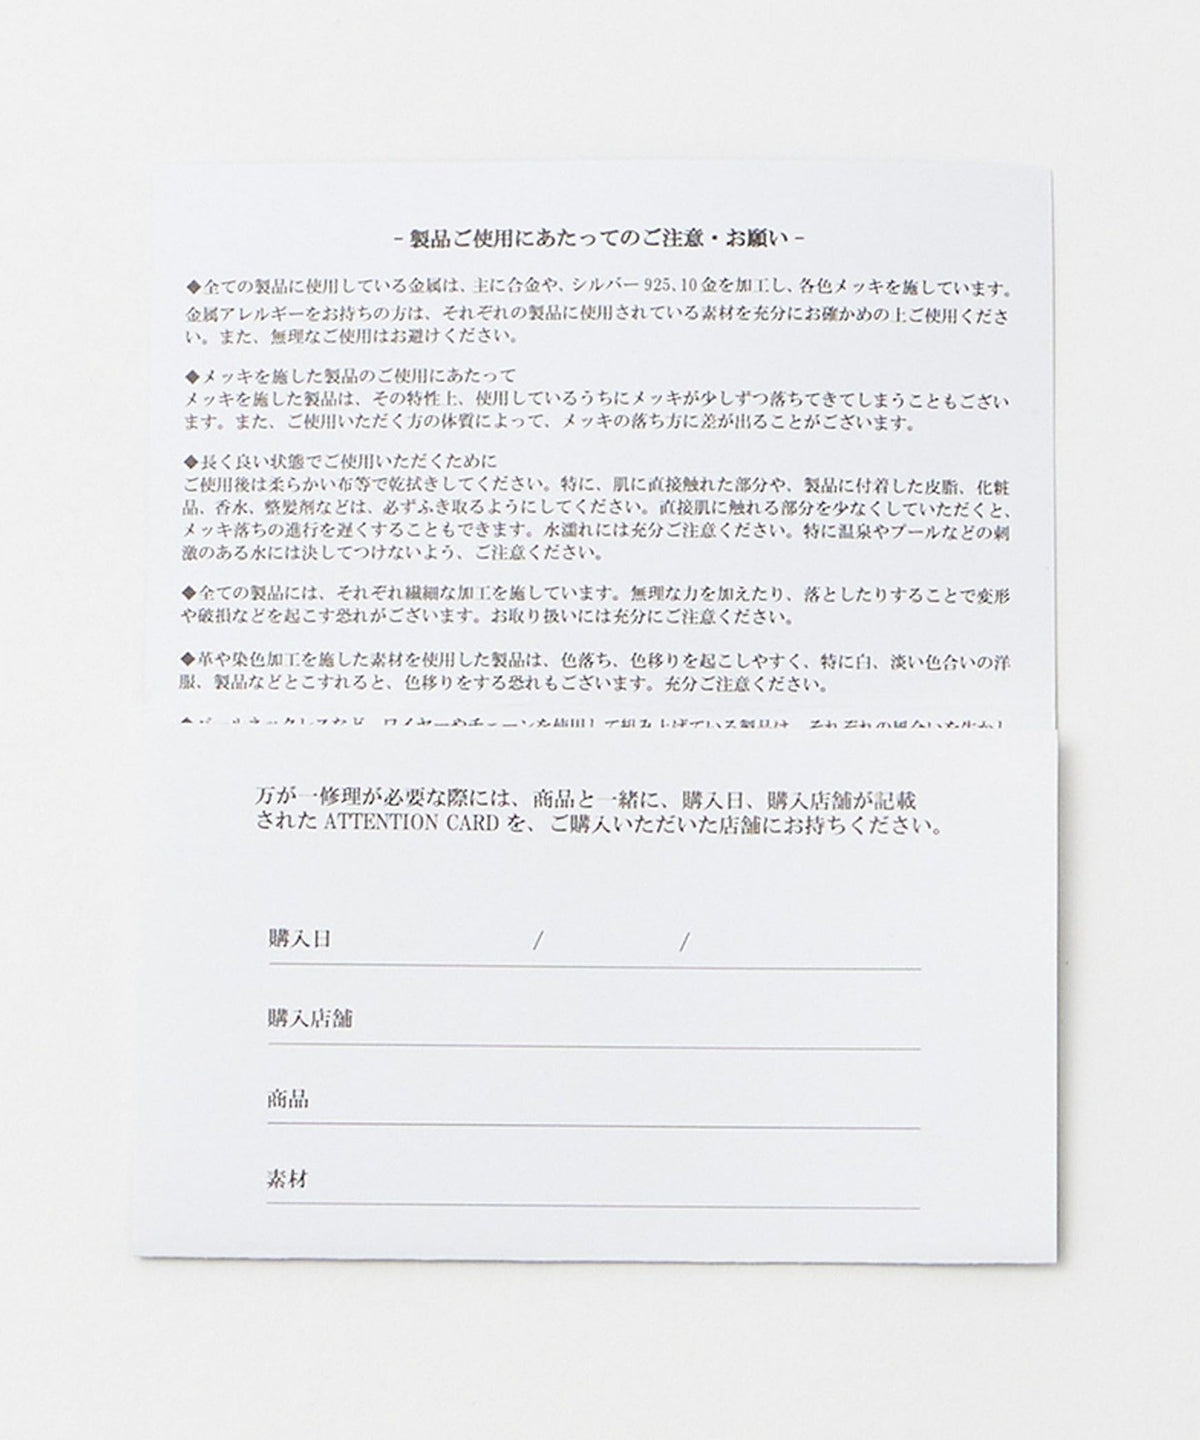 - 製品ご使用にあたってのご注意・お願い -
◆全ての製品に使用している金属は、主に合金や、シルバー925、10金を加工し、各色メッキを施しています。
金属アレルギーをお持ちの方は、それぞれの製品に使用されている素材を充分にお確かめの上ご使用くださ
い。また、無理なご使用はお避けください。
◆メッキを施した製品のご使用にあたって
メッキを施した製品は、その特性上、使用しているうちにメッキが少しずつ落ちてきてしまうこともござい
ます。また、ご使用いただく方の体質によって、メッキの落ち方に差が出ることがございます。
◆長く良い状態でご使用いただくために
ご使用後は柔らかい布等で乾拭きしてください。特に、肌に直接触れた部分や、製品に付着した皮脂、化粧
品、香水、整髪剤などは、必ずふき取るようにしてください。直接肌に触れる部分を少なくしていただくと、
メッキ落ちの進行を遅くすることもできます。水濡れには充分ご注意ください。特に温泉やプールなどの刺
激のある水には決してつけないよう、ご注意ください。
◆全ての製品には、それぞれ繊細な加工を施しています。無理な力を加えたり、落としたりすることで変形
や破損などを起こす恐れがございます。お取り扱いには充分にご注意ください。
◆革や染色加工を施した素材を使用した製品は、色落ち、色移りを起こしやすく、特に白、淡い色合いの洋
服、製品などとこすれると、色移りをする恐れもございます。充分ご注意ください。
◆パールネックレスなど、ワイヤーやチェーンを使用して組み上げている製品は、それぞれの風合いを生かし
万が一修理が必要な際には、商品と一緒に、購入日、購入店舗が記載
された ATTENTION CARD を、ご購入いただいた店舗にお持ちください。
購入日 / /
購入店舗
商品
素材